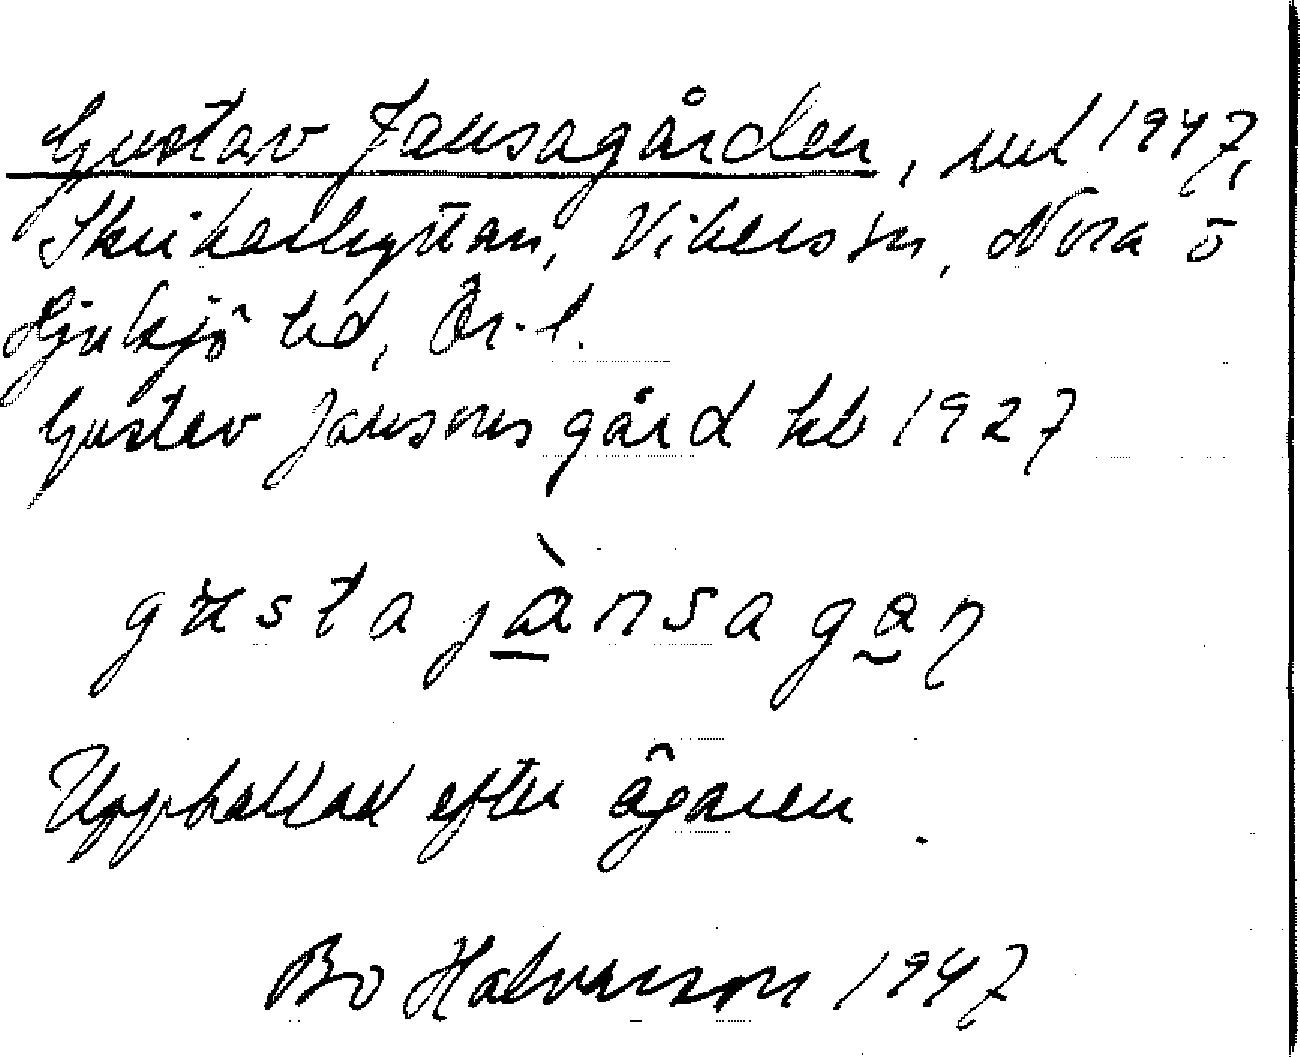 Gustav Jansagården, uul 1947,
Skrikarhyttan, Vikers sn, Nora o
Hjulsjö td, Ör. l.
Gustav Jansons gård kb 1927
gusta jànsagaɳ
Uppkallad efter ägaren.
Bo Halvarson 1947